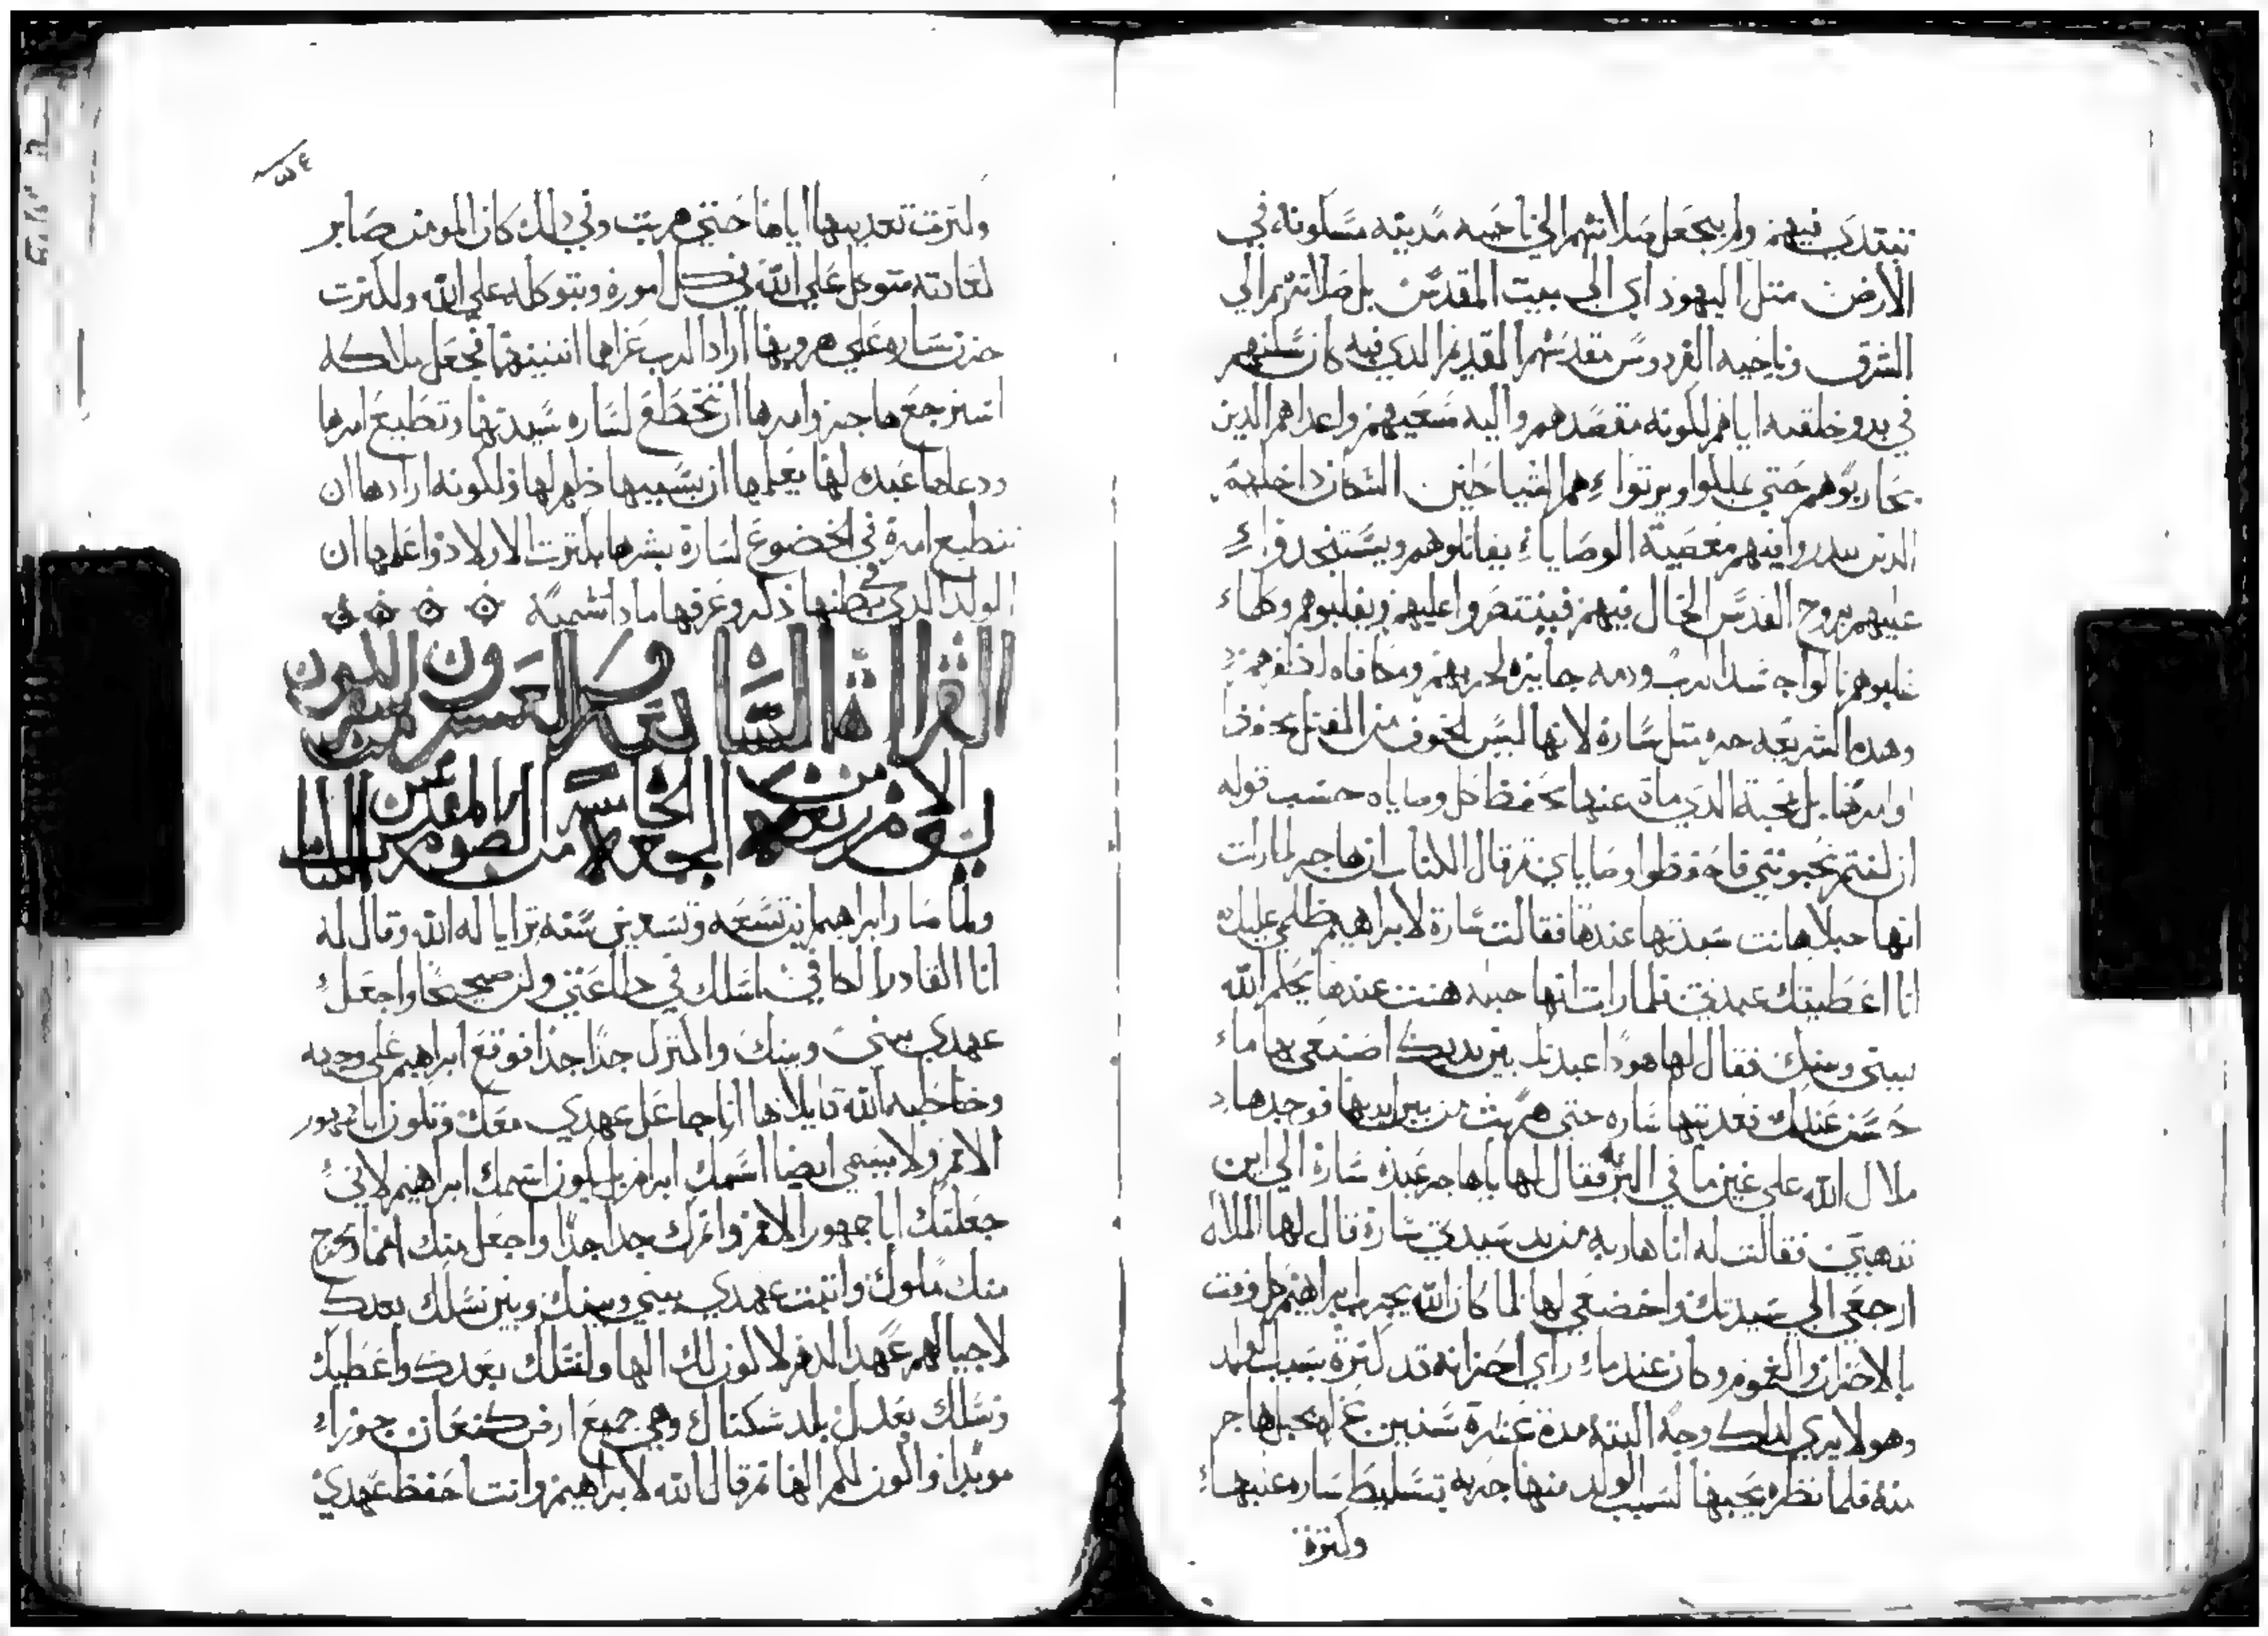 تبتدي فيهم ولم يجعل صلاتهم الي ناحيه مدينه مسكونه في
الارض متل اليهود اي الي بيت المقدس بل صلاتهم الي
الشرق وناحيه الفردوس مقدسهم القديم الدي فيه كان سكنهم
في بدو خلقته اياهم لكونه مقصدهم واليه سعيهم واعداهم الدين
يحاربوهم حتي هم الشياطين السكان داخلهم
الدين فيهم معصية الوصايا يقاتلوهم ويستنجدوا
عليهم بروح القدس الحال فيهم فينتصروا عليهم ويغلبوهم وكلما
غلبوهم نالوا جسد الرب ودمه جايزه لحربهم
وهده الشريعه حره متل ساره لانها ليس لخوف من القتل يحفظوا
اوامرها بل لمحبة الدي مات عنها يحفظ كل وصاياه حسب قوله
ان كنتم تحبونني فاحفظوا وصاياي تم قال الكتاب ان هاجر لما رات
انها حبلا هانت سيدتها عندها فقالت سارة لابراهيم ظلمي عليك
انا اعطيتك عبدتي فلما رات انها حبله هنت عندها يحكم الله
بيني وبينك فقال لها هودا عبدتك بين يديك اصنعي بها ما
حسن عندك فعدبتها ساره حتي هربت من بين ايديها فوجدها
ملاك الله علي عين ما في البريه فقال لها يا هاجر عبدة سارة الي اين
تدهبين فقالت له انا هاربه من يد سيدتي سارة قال لها الملاك
ارجعي الي سيدتك واخضعي لها لما كان الله يجرب ابراهيم كل وقت
بالاحزان والغموم وكان عندما راي احزانه قد كترة بسبب الولد
وهو لا يري لدلك وجه البتة مدة عشرة سنين عزاه بحبل هاجر
منه فلما نظره يحبها لسبب الولد منها جربه بتسليط ساره عليها
ولترة
ولترت تعديبها اياها حتي هربت وفي دلك كان المومن صابر
متوكل علي الله في كل اموره وبتوكله علي الله ولكترت
حزن ساره علي هروبها اراد الرب عزاها فجعل ملاكه
استرجع هاجر وامرها ان تخضع لساره سيدتها وتطيع امرها
ودعاها عبده لها يعلمها ان ولكونه ارادها ان
تطيع امره في الخضوع لسارة بشرها بكترت الاولاد واعلمها ان
الولد الدي في بطنها دكر وعرفها مادا تسميه
القراة التالته والعشرون
يقرا من الجمعه الخامسه من الصوم المقدس
ولما صار ابراهيم ابن تسعه وتسعين سنه ترايا له الله وقال له
انا القادر الكافي اسلك في طاعتي وكن صحيحا واجعل
عهدي بيني وبينك واكترك جدا جدا فوقع ابراهيم علي وجهه
وخاطبه الله قايلا ها انا جاعل عهدي معك وتكون ابا جمهور
الامم ولا يسمي ايضا اسمك ابرام بل يكون اسمك ابراهيم لاني
جعلتك ابا جمهور الامم واترك جدا جدا واجعل منك امما وتخرج
منك ملوك واتبت عهدي بيني وبينك وبين نسلك بعدك
لاجيالهم عهد الدهر لاكون لك الها ولنسلك بعدك واعطيك
ونسلك بعدك بلد سكناك وهي جميع ارض كنعان حوزا
موبدا واكون لكم الها تم قال الله لابراهيم وانت احفظ عهدي